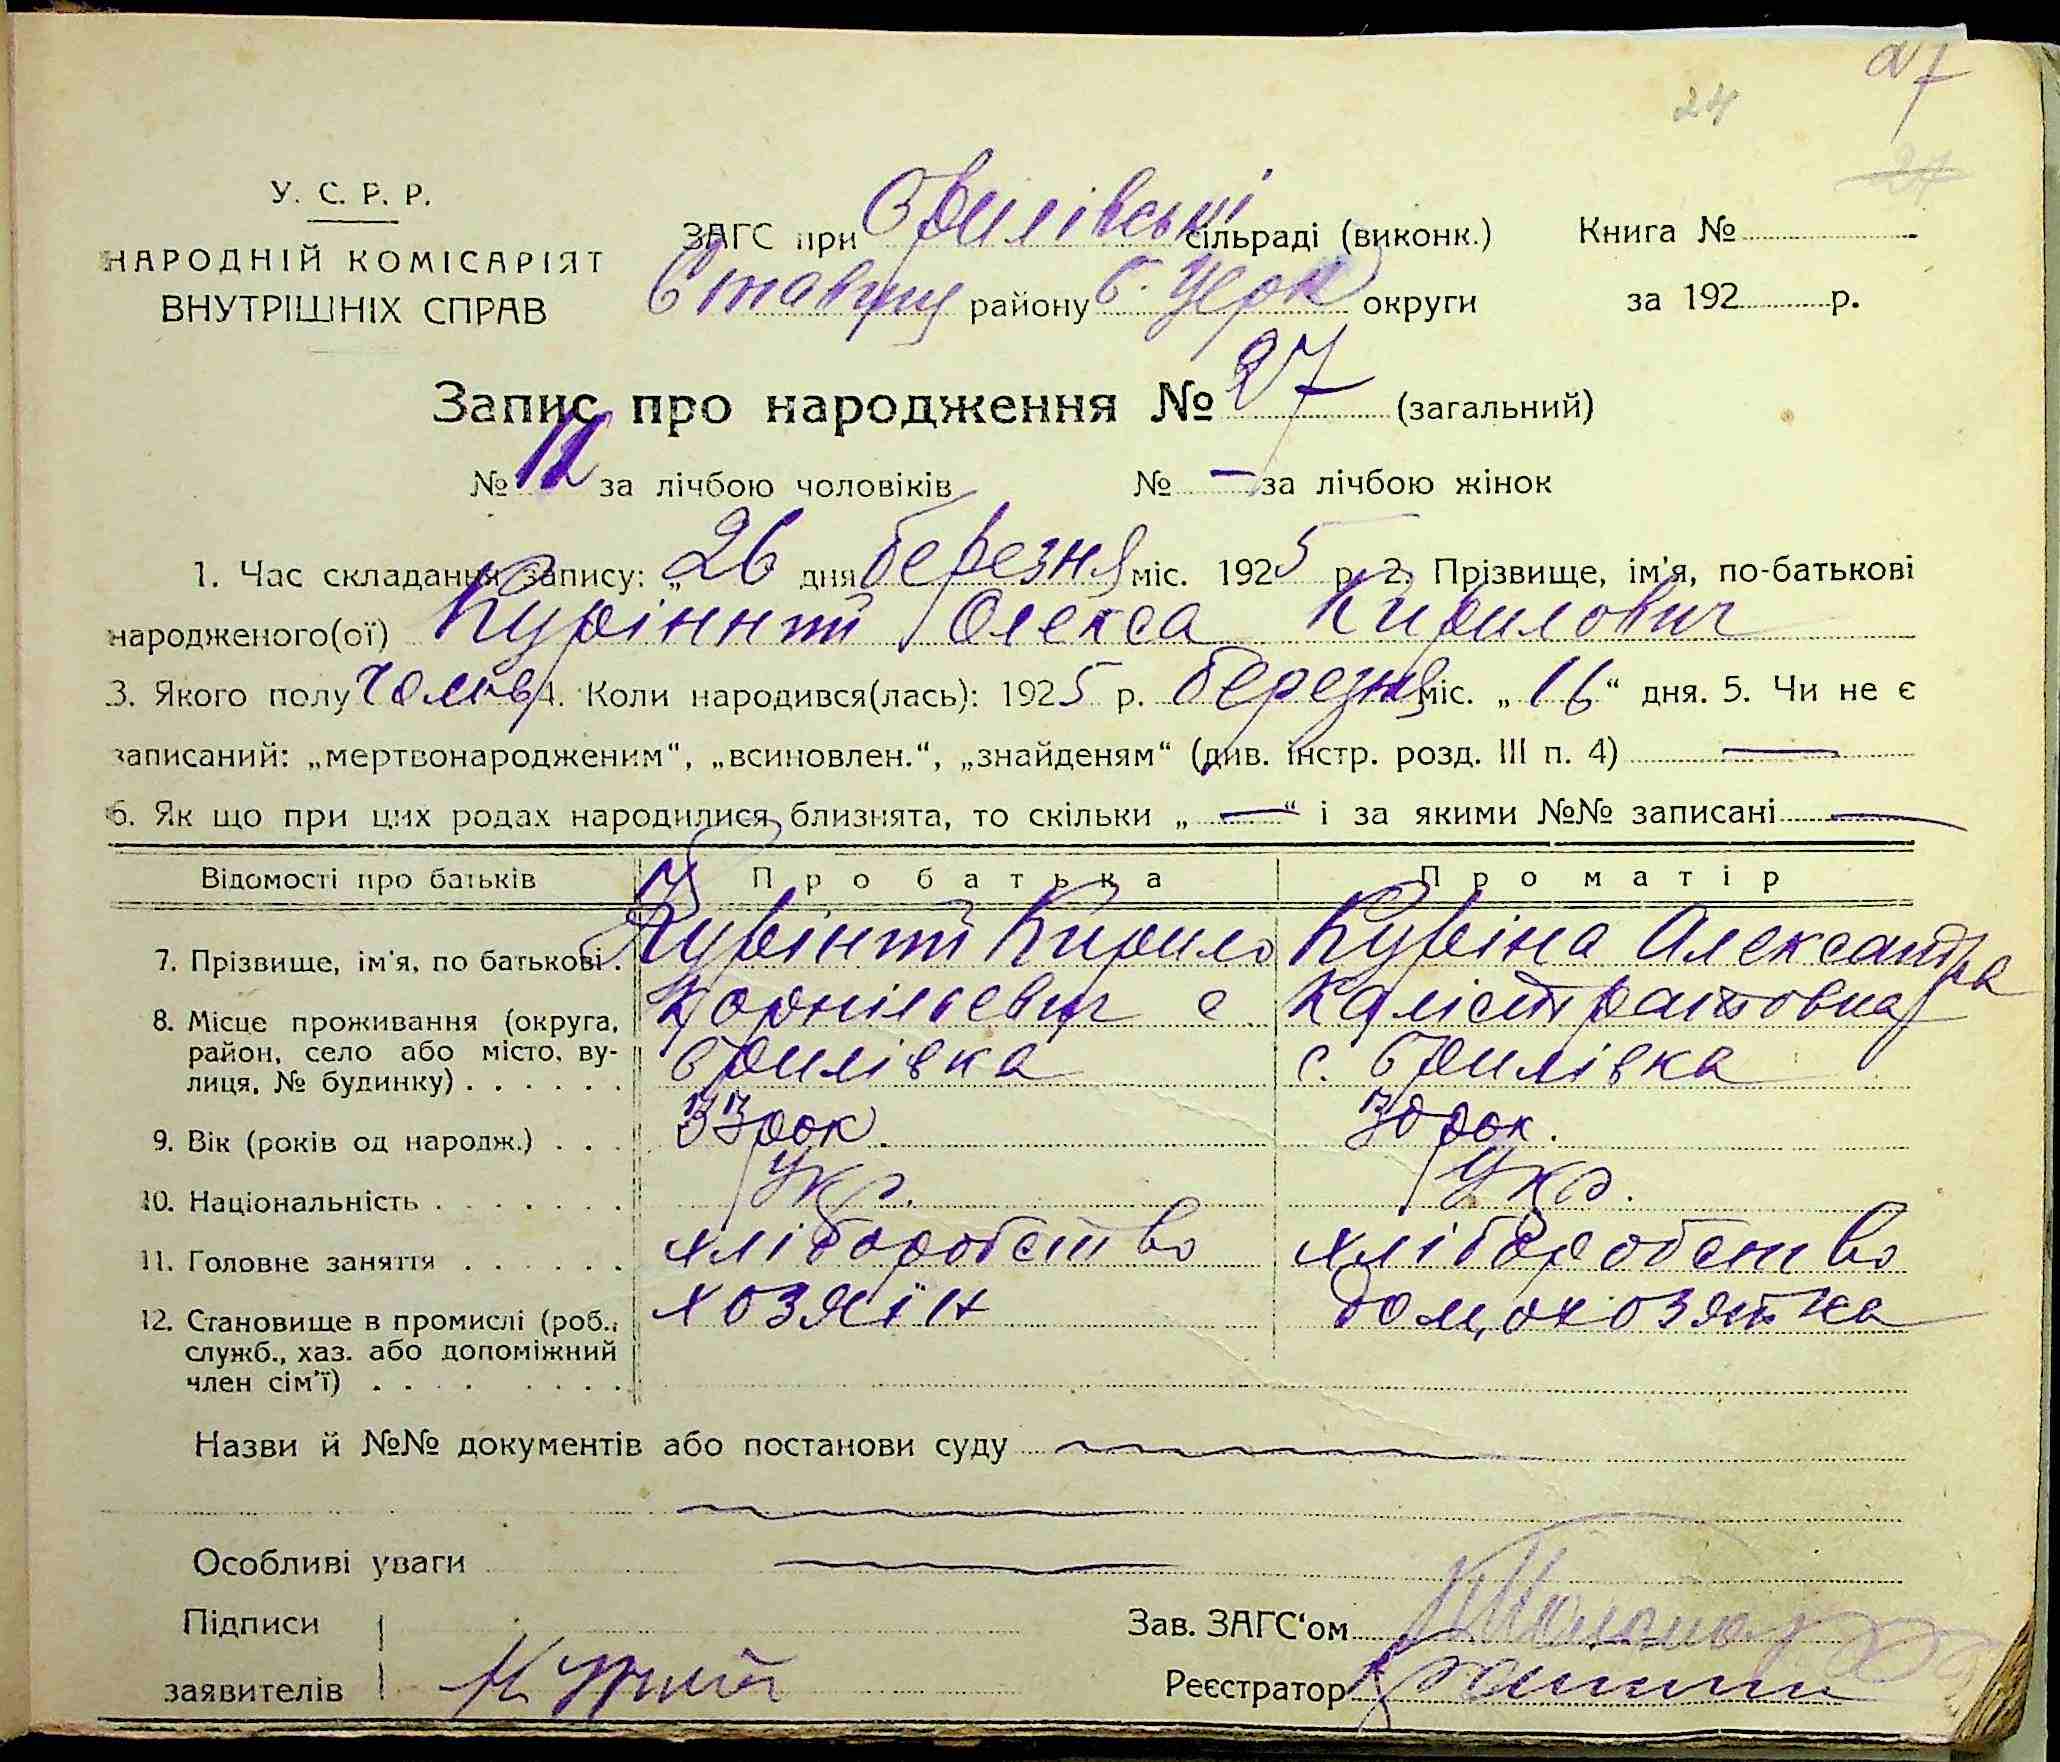 27
24
27
У. С. Р. Р.
НАРОДНІЙ КОМІСАРІЯТ
ВНУТРІШНІХ СПРАВ
ЗАГС при сільраді (виконк.) Книга №
району Б. Церк округи за 192 р.
Запис про народження № 27 (загальний)
№ 12 за лічбою чоловіків № — за лічбою жінок
1. Час складання запису: „ 26 дня березня міс. 1925 р. 2. Прізвище, ім'я, по-батькові
народженого(ої) Олекса Кирилович
3. Якого полу 4. Коли народився(лась): 1925 р. березня міс. „ 16 “ дня. 5. Чи не є
записаний: „мертвонародженим“, „всиновлен.“, „знайденям“ (див. інстр. розд. III п. 4) —
6. Як що при цих родах народилися близнята, то скільки „ — “ і за якими №№ записані —
Відомості про батьків Про батька Про матір
7. Прізвище, ім'я, по батькові . Кирило Куріна Александра
8. Місце проживання (округа, Корнільевич с Калістратовна
район, село або місто, ву- с.
лиця, № будинку) . . . . . .
9. Вік (років од народж.) . . . 33 рок. 30 рок.
10. Національність . . . . . . . Укр. Укр.
11. Головне заняття . . . . . . хліборобство хліборобство
12. Становище в промислі (роб., хозяїн домохозяйка
служб., хаз. або допоміжний
член сім'ї) . . . . . . . .
Назви й №№ документів або постанови суду
Особливі уваги
Підписи
Зав. ЗАГС‘ом
заявителів
Реєстратор